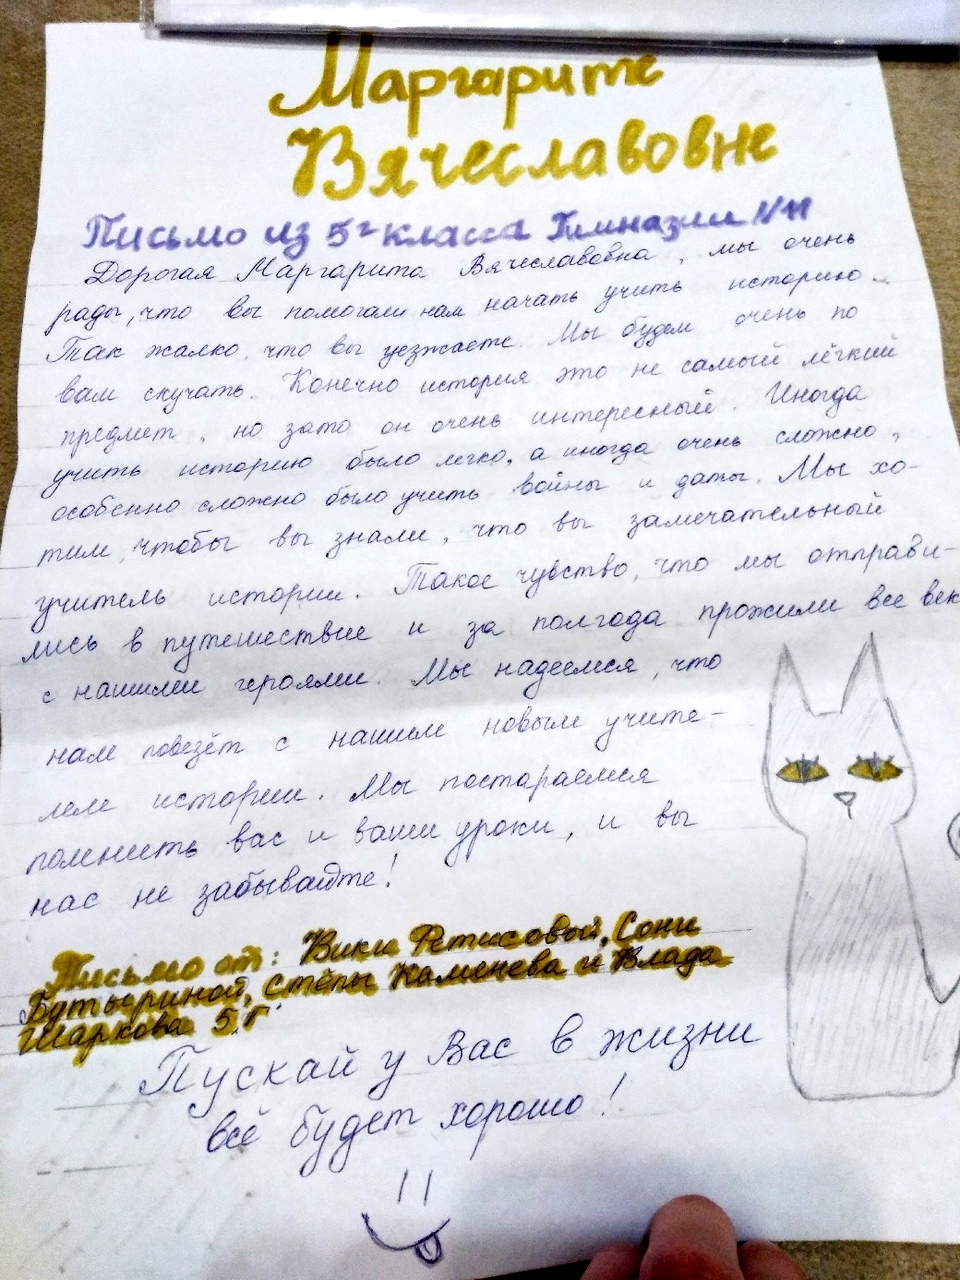 Маргарите
Вячеславовне
Письмо из 5г класса Гимназии №11
Дорогая Маргарита Вячеславовна, мы очень
рады, что вы помогали нам начать учить историю.
Так жалко, что вы уезжаете. Мы будем очень по
вам скучать. Конечно история это не самый лёгкий
предмет, но зато он очень интересный. Иногда
учить историю было легко, а иногда очень сложно,
особенно сложно было учить войны и даты. Мы хо-
тим, чтобы вы знали, что вы замечательный
учитель истории. Такое чувство, что мы отправи-
лись в путешествие и за полгода прожили все век
с нашими героями. Мы надеемся, что
нам повезёт с нашим новым учите-
лем истории. Мы постараемся
помнить вас и ваши уроки, и вы
нас не забывайте!
Письмо от: Вики Фетисовой, Сони
Бутыриной, Стёпы Каменева и Влада
Шаркова 5.Г
Пускай у Вас в жизни
всё будет хорошо!